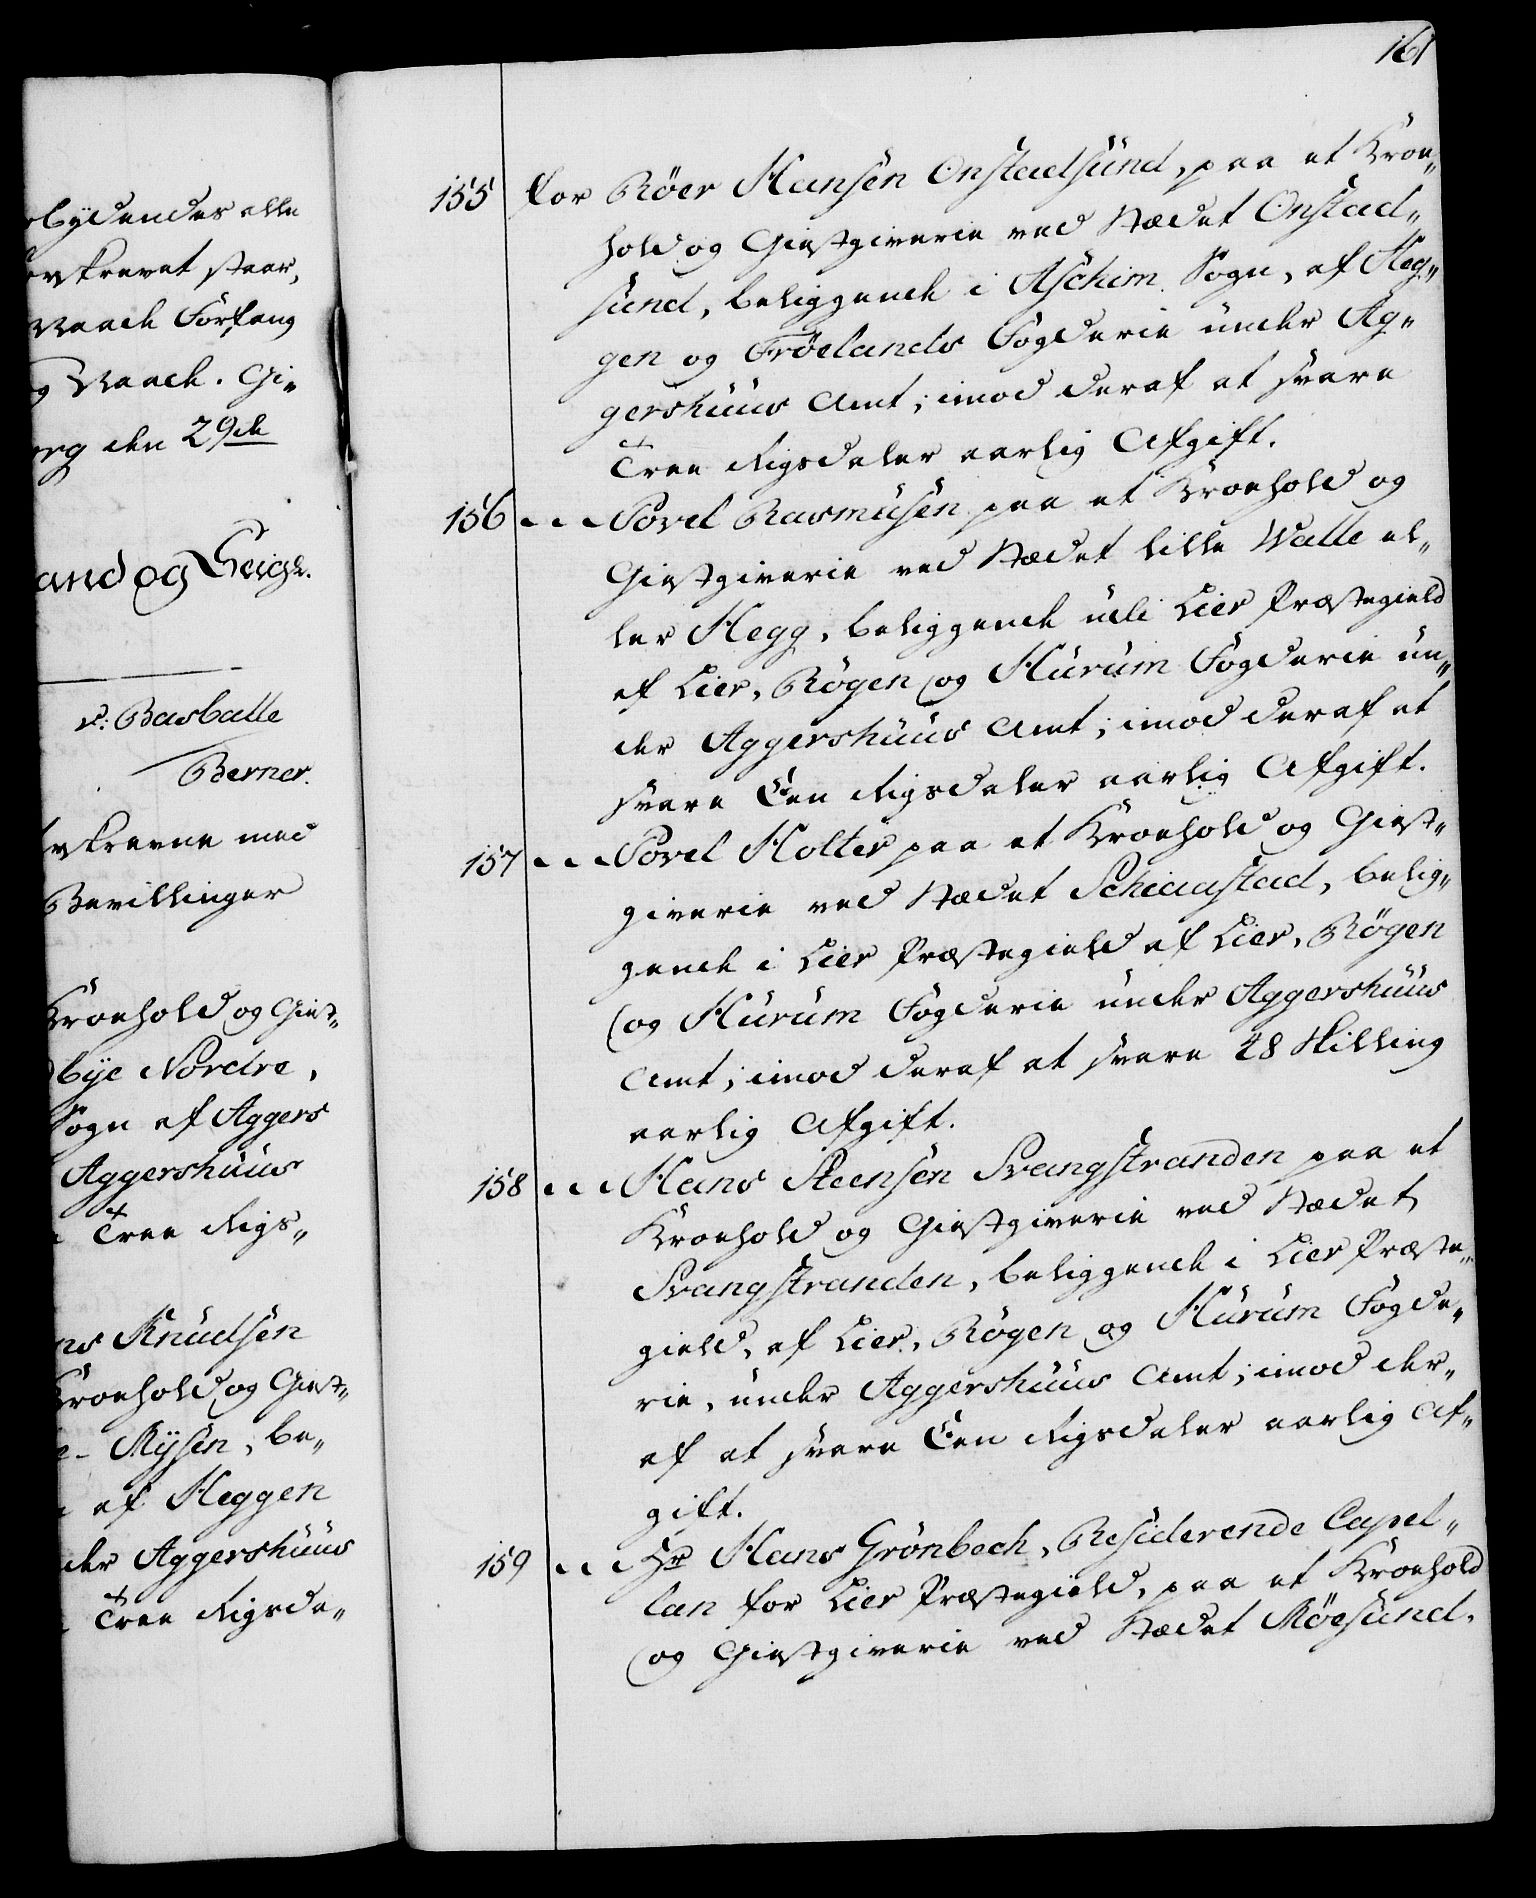 161
rbydendes alle
orskrevet staar,
Maade Forfang
g Maade. Gi„
org den 29de
and og Seigl.
v: Basballe
Berner.
rskrevne med
Bevillinger
Kroehold og Giest„
bye Nordre,
Sogn af Aggers
Aggershuus
Tree Rigs„
ns Knudsen
Kroehold og Giest„
Mysen, be„
af Heggen
der Aggershuus
Tree Rigsda„
155 for Röer Hansen Onstadsund, paa et Kroe„
hold og Giestgiverie ved Stædet Onstad„
sund, beliggende i Aschim Sogn, af Heg„
gen og Fröelands Fogderie under Ag„
gershuus Amt; imod deraf at svare
Tree Rigsdaler aarlig Afgift.
156 - - - Povel Rasmusen paa et Kroehold og
Giestgiverie ved Stædet lille Walle el„
ler Hegg, beliggende udi Lier Præstegield
af Lier, Rögen og Hurum Fogderie un„
der Aggershuus Amt; imod deraf at
svare Een Rigsdaler aarlig Afgift.
157 - - - Povel Holter paa et Kroehold og Giest„
giverie ved Stædet Schiaastad, belig„
gende i Lier Præstegield af Lier, Rögen
og Hurum Fogderie under Aggershuus
Amt; imod deraf at svare 48 Skilling
aarlig Afgift.
158 - - - Hans Steensen Svangstranden paa et
Kroehold og Giestgiverie ved Stædet
Svangstranden, beliggende i Lier Præste„
gield, af Lier, Rögen og Hurum Fogde„
rie, under Aggershuus Amt; imod der„
af at svare Een Rigsdaler aarlig Af„
gift.
159 - - Hr Hans Grönbech, Residerende Capel„
lan for Lier Præstegield, paa et Kroehold
og Giestgiverie ved Stædet Möesund,